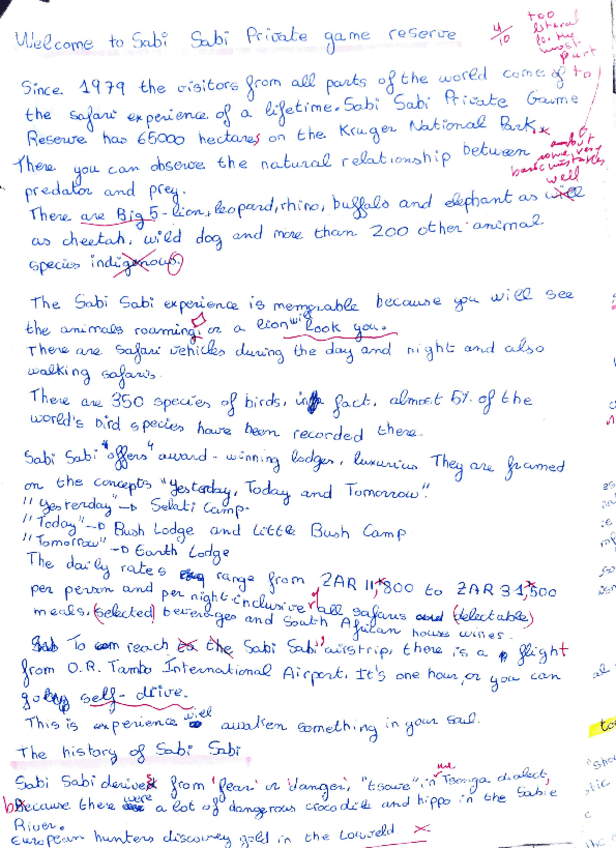 Welcome to Sabi Sabi Private game reserve
4/10
too
literal
for the
most
part
Since 1979 the visitors from all parts of the world come to
the safari experience of a lifetime. Sabi Sabi Private Game
Reserve has 65000 hectares on the Kruger National Park
There you can observe the natural relationship between
predator and prey.
some very
basic mistakes
well
There are Big 5 - lion, leopard, rhino, buffalo and elephant as well
as cheetah, wild dog and more than 200 other animal
species indigenous.
The Sabi Sabi experience is memorable because you will see
the animals roaming, or a lion will look you.
There are safari vehicles during the day and night and also
walking safaris.
There are 350 species of birds, in fact, almost 5% of the
world's bird species have been recorded there.
Sabi Sabi "offers" award-winning lodges, luxurius They are framed
on the concepts "Yesterday, Today and Tomorrow".
"Yesterday" → Selati Camp.
"Today" → Bush Lodge and Little Bush Camp
"Tomorrow" → Earth Lodge
The daily rates range from ZAR 11,800 to ZAR 31,500
per person and per night inclusive of all safaris and (delectable)
meals, (selected) beverages and South African house wines.
To reach to the Sabi Sabi's airstrip, there is a flight
from O.R. Tambo International Airport. It's one hour, or you can
go by self-drive.
This is experience will awaken something in your soul.
The history of Sabi Sabi
Sabi Sabi derives from 'fear' or 'danger', "tsave", in the Tsonga dialect,
because there were a lot of dangerous crocodile and hippo in the Sabie
River.
European hunters discovey gold in the Lowveld